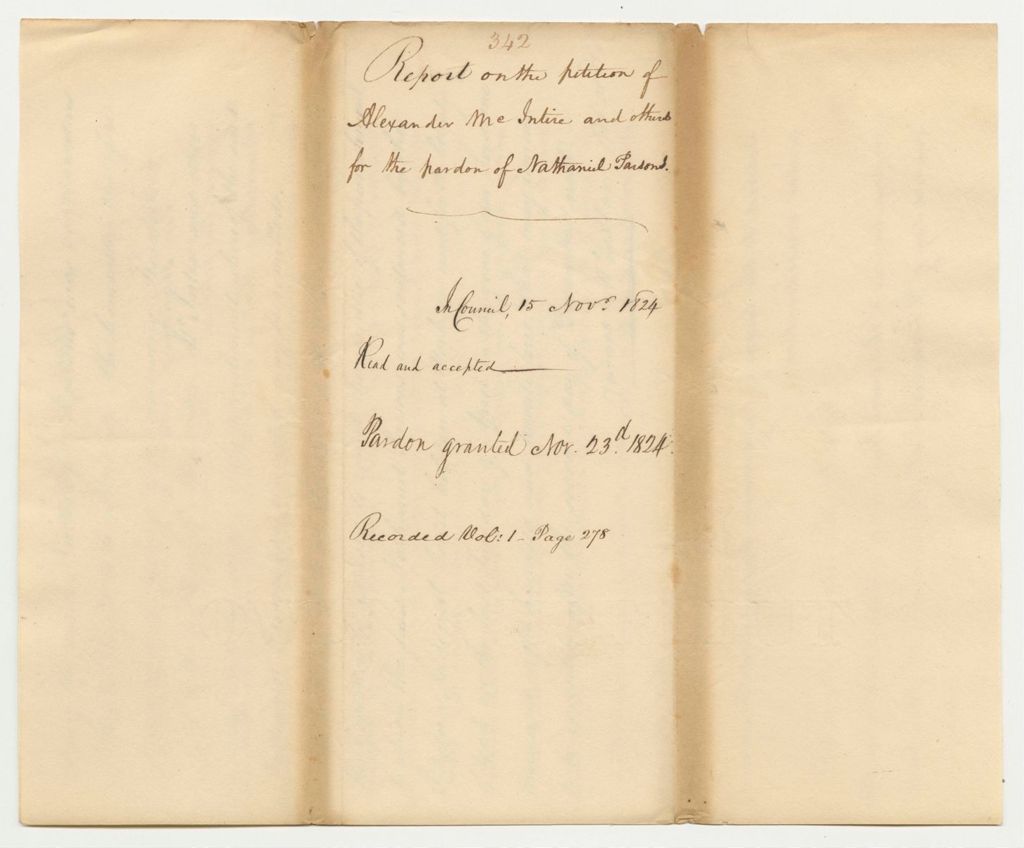 342
Report on the petition of
Alexander Mc Intire and others
for the pardon of Nathaniel Parsons.
In Council, 15 Novr. 1824
Read and accepted
Pardon granted Nov. 23d. 1824.
Recorded Vol: 1 - Page 278